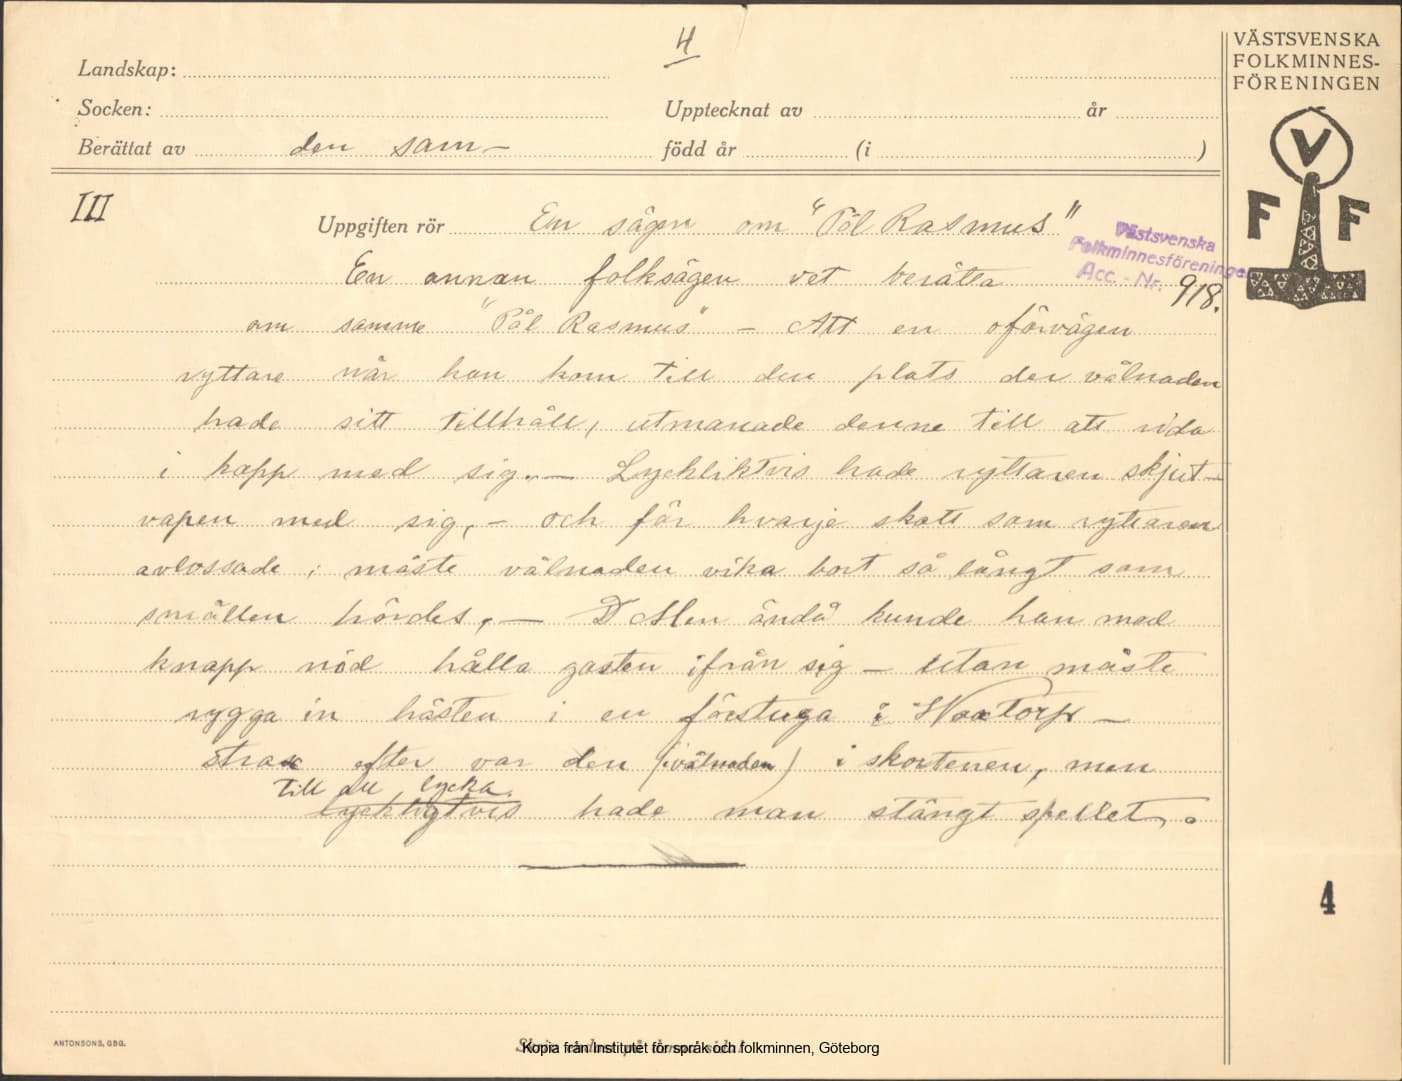 4
VÄSTSVENSKA
FOLKMINNES-
FÖRENINGEN
V
F F
Landskap:
Socken: Upptecknat av år
Berättat av den sam— född år (i )
III
Uppgiften rör En sägen om "Pål Rasmus"
Västsvenska
Folkminnesföreningen
Acc. - Nr. 918.
En annan folksägen vet berätta
om samme "Pål Rasmus" — Att en oförvägen
ryttare når han kom till den plats der vålnaden
hade sitt tillhåll, utmanade denne till att rida
i kapp med sig. — Lyckliktvis hade ryttaren skjut-
vapen med sig, — och för hvarje skott som ryttaren
avlossade ; måste vålnaden vika bort så långt som
smällen hördes, — Men ändå kunde han med
knapp nöd hålla gasten ifrån sig — utan måste
rygga in hästen i en förstuga i Noxtorp —
strax efter var den (vålnaden) i skorstenen, men
till all lycka.
lyckligtvis hade man stängt spellet.
4
ANTONSONS, GBG.
Kopia från Institutet för språk och folkminnen, Göteborg